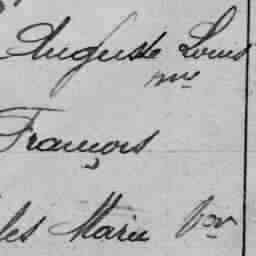 Auguste Louis
François
les Marie